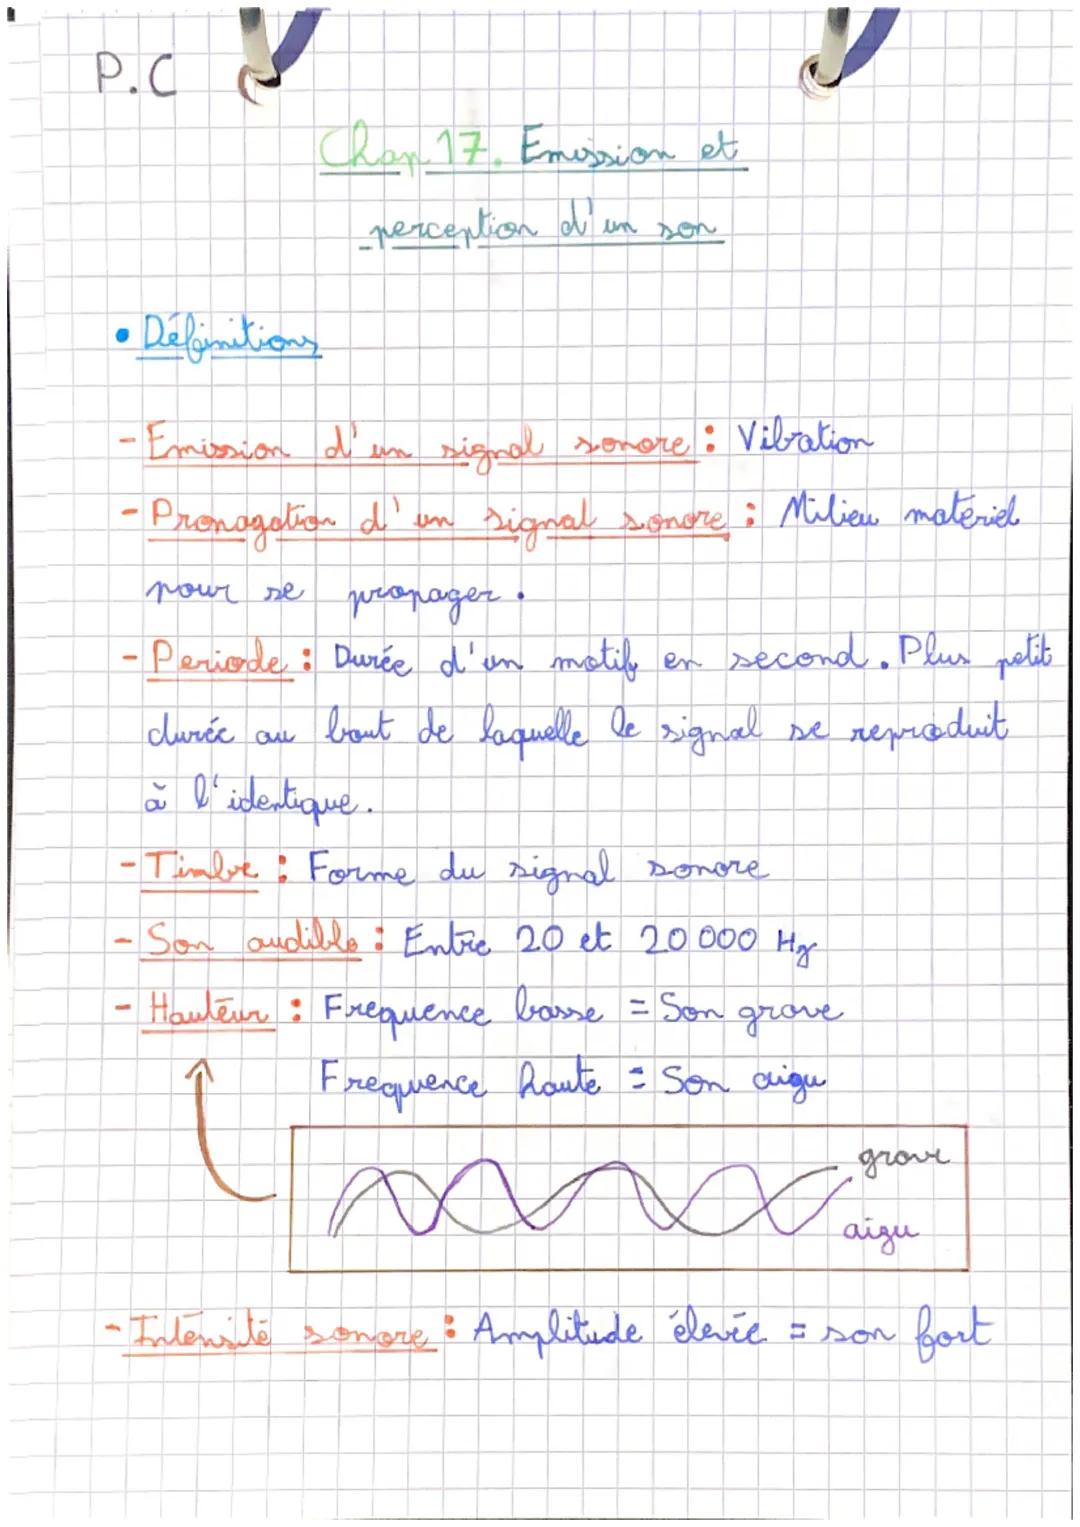 P.C
Chap 17. Emission et
perception d'un son
• Définitions
- Emission d'un signal sonore : Vibration
- Propagation d'un signal sonore : Milieu matériel
pour se propager.
- Periode : Durée d'un motif en second. Plus petit
durée au bout de laquelle le signal se reproduit
à l'identique.
- Timbre : Forme du signal sonore
- Son audible : Entre 20 et 20 000 Hz
- Hauteur : Frequence basse = Son grave
Frequence haute = Son aigu
grave
aigu
- Intensité sonore : Amplitude élevée = son fort